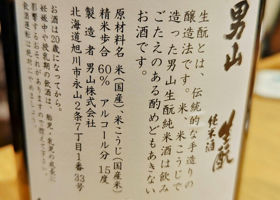 男山
生酛
純米酒
生酛とは、伝統的な手造りの
醸造法です。米、米こうじで
造った男山生酛純米酒は飲み
ごたえのある酌めどもあきない
お酒です。
原材料名 米(国産)・米こうじ(国産米)
精米歩合 60% アルコール分 15度
製造者 男山株式会社
北海道旭川市永山2条7丁目1番33号
お酒は20歳になってから。
妊娠中や授乳期の飲酒は、胎児・乳児の発育に
影響するおそれがありますので控えて下さい。
飲酒運転は絶対に